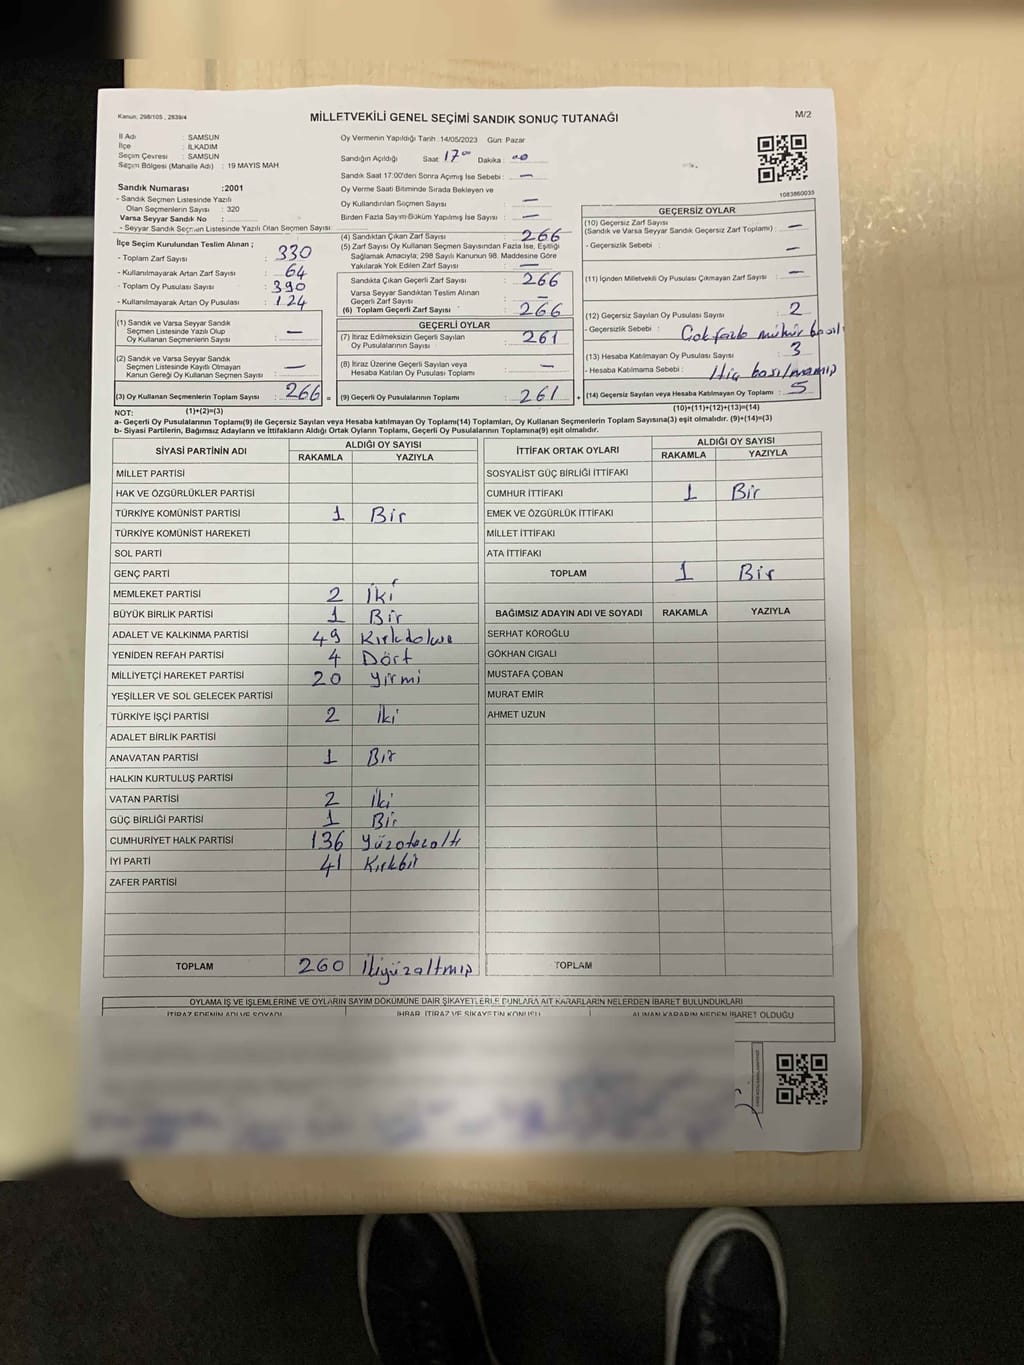 Kanun; 298/105 , 2839/4
MİLLETVEKİLİ GENEL SEÇİMİ SANDIK SONUÇ TUTANAĞI
M/2
İl Adı : SAMSUN
İlçe : İLKADIM
Seçim Çevresi : SAMSUN
Seçim Bölgesi (Mahalle Adı) : 19 MAYIS MAH
Sandık Numarası :2001
- Sandık Seçmen Listesinde Yazılı
Olan Seçmenlerin Sayısı : 320
Varsa Seyyar Sandık No :
- Seyyar Sandık Seçmen Listesinde Yazılı Olan Seçmen Sayısı:
Oy Vermenin Yapıldığı Tarih :14/05/2023 Gün: Pazar
Sandığın Açıldığı Saat 17°° Dakika : 00
Sandık Saat 17:00'den Sonra Açmış İse Sebebi : —
Oy Verme Saati Bitiminde Sırada Bekleyen ve
Oy Kullandırılan Seçmen Sayısı : —
Birden Fazla Sayım-Döküm Yapılmış İse Sayısı : —
1083860035
İlçe Seçim Kurulundan Teslim Alınan ;
- Toplam Zarf Sayısı : 330
- Kullanılmayarak Artan Zarf Sayısı : 64
- Toplam Oy Pusulası Sayısı : 390
- Kullanılmayarak Artan Oy Pusulası : 124
(1) Sandık ve Varsa Seyyar Sandık
Seçmen Listesinde Yazılı Olup
Oy Kullanan Seçmenlerin Sayısı : —
(2) Sandık ve Varsa Seyyar Sandık
Seçmen Listesinde Kayıtlı Olmayan
Kanun Gereği Oy Kullanan Seçmen Sayısı : —
(3) Oy Kullanan Seçmenlerin Toplam Sayısı : 266 =
(4) Sandıktan Çıkan Zarf Sayısı : 266
(5) Zarf Sayısı Oy Kullanan Seçmen Sayısından Fazla İse, Eşitliği
Sağlamak Amacıyla; 298 Sayılı Kanunun 98. Maddesine Göre
Yakılarak Yok Edilen Zarf Sayısı : —
Sandıkta Çıkan Geçerli Zarf Sayısı : 266
Varsa Seyyar Sandıktan Teslim Alınan
Geçerli Zarf Sayısı : —
(6) Toplam Geçerli Zarf Sayısı : 266
GEÇERLİ OYLAR
(7) İtiraz Edilmeksizin Geçerli Sayılan
Oy Pusulalarının Sayısı : 261
(8) İtiraz Üzerine Geçerli Sayılan veya
Hesaba Katılan Oy Pusulası Toplamı : —
(9) Geçerli Oy Pusulalarının Toplamı : 261 +
GEÇERSİZ OYLAR
(10) Geçersiz Zarf Sayısı
(Sandık ve Varsa Seyyar Sandık Geçersiz Zarf Toplamı) : —
- Geçersizlik Sebebi : —
(11) İçinden Milletvekili Oy Pusulası Çıkmayan Zarf Sayısı : —
(12) Geçersiz Sayılan Oy Pusulası Sayısı : 2
- Geçersizlik Sebebi : Çok fazla mühür basıl
(13) Hesaba Katılmayan Oy Pusulası Sayısı : 3
- Hesaba Katılmama Sebebi : Hiç basılmamış
(14) Geçersiz Sayılan veya Hesaba Katılmayan Oy Toplamı : 5
NOT: (1)+(2)=(3) (10)+(11)+(12)+(13)=(14)
a- Geçerli Oy Pusulalarının Toplamı(9) ile Geçersiz Sayılan veya Hesaba katılmayan Oy Toplamı(14) Toplamları, Oy Kullanan Seçmenlerin Toplam Sayısına(3) eşit olmalıdır. (9)+(14)=(3)
b- Siyasi Partilerin, Bağımsız Adayların ve İttifakların Aldığı Ortak Oyların Toplamı, Geçerli Oy Pusulalarının Toplamına(9) eşit olmalıdır.
SİYASİ PARTİNİN ADI ALDIĞI OY SAYISI
RAKAMLA YAZIYLA
MİLLET PARTİSİ
HAK VE ÖZGÜRLÜKLER PARTİSİ
TÜRKİYE KOMÜNİST PARTİSİ 1 Bir
TÜRKİYE KOMÜNİST HAREKETİ
SOL PARTİ
GENÇ PARTİ
MEMLEKET PARTİSİ 2 İki
BÜYÜK BİRLİK PARTİSİ 1 Bir
ADALET VE KALKINMA PARTİSİ 49 Kırkdokuz
YENİDEN REFAH PARTİSİ 4 Dört
MİLLİYETÇİ HAREKET PARTİSİ 20 Yirmi
YEŞİLLER VE SOL GELECEK PARTİSİ
TÜRKİYE İŞÇİ PARTİSİ 2 İki
ADALET BİRLİK PARTİSİ
ANAVATAN PARTİSİ 1 Bir
HALKIN KURTULUŞ PARTİSİ
VATAN PARTİSİ 2 İki
GÜÇ BİRLİĞİ PARTİSİ 1 Bir
CUMHURİYET HALK PARTİSİ 136 Yüzotuzaltı
İYİ PARTİ 41 Kırkbir
ZAFER PARTİSİ
TOPLAM 260 İkiyüzaltmış
İTTİFAK ORTAK OYLARI ALDIĞI OY SAYISI
RAKAMLA YAZIYLA
SOSYALİST GÜÇ BİRLİĞİ İTTİFAKI
CUMHUR İTTİFAKI 1 Bir
EMEK VE ÖZGÜRLÜK İTTİFAKI
MİLLET İTTİFAKI
ATA İTTİFAKI
TOPLAM 1 Bir
BAĞIMSIZ ADAYIN ADI VE SOYADI RAKAMLA YAZIYLA
SERHAT KÖROĞLU
GÖKHAN CIGALI
MUSTAFA ÇOBAN
MURAT EMİR
AHMET UZUN
TOPLAM
OYLAMA İŞ VE İŞLEMLERİNE VE OYLARIN SAYIM DÖKÜMÜNE DAİR ŞİKAYETLERLE BUNLARA AİT KARARLARIN NELERDEN İBARET BULUNDUKLARI
İTİRAZ EDENİN ADI VE SOYADI İHBAR, İTİRAZ VE ŞİKAYETİN KONUSU ALINAN KARARIN NEDEN İBARET OLDUĞU